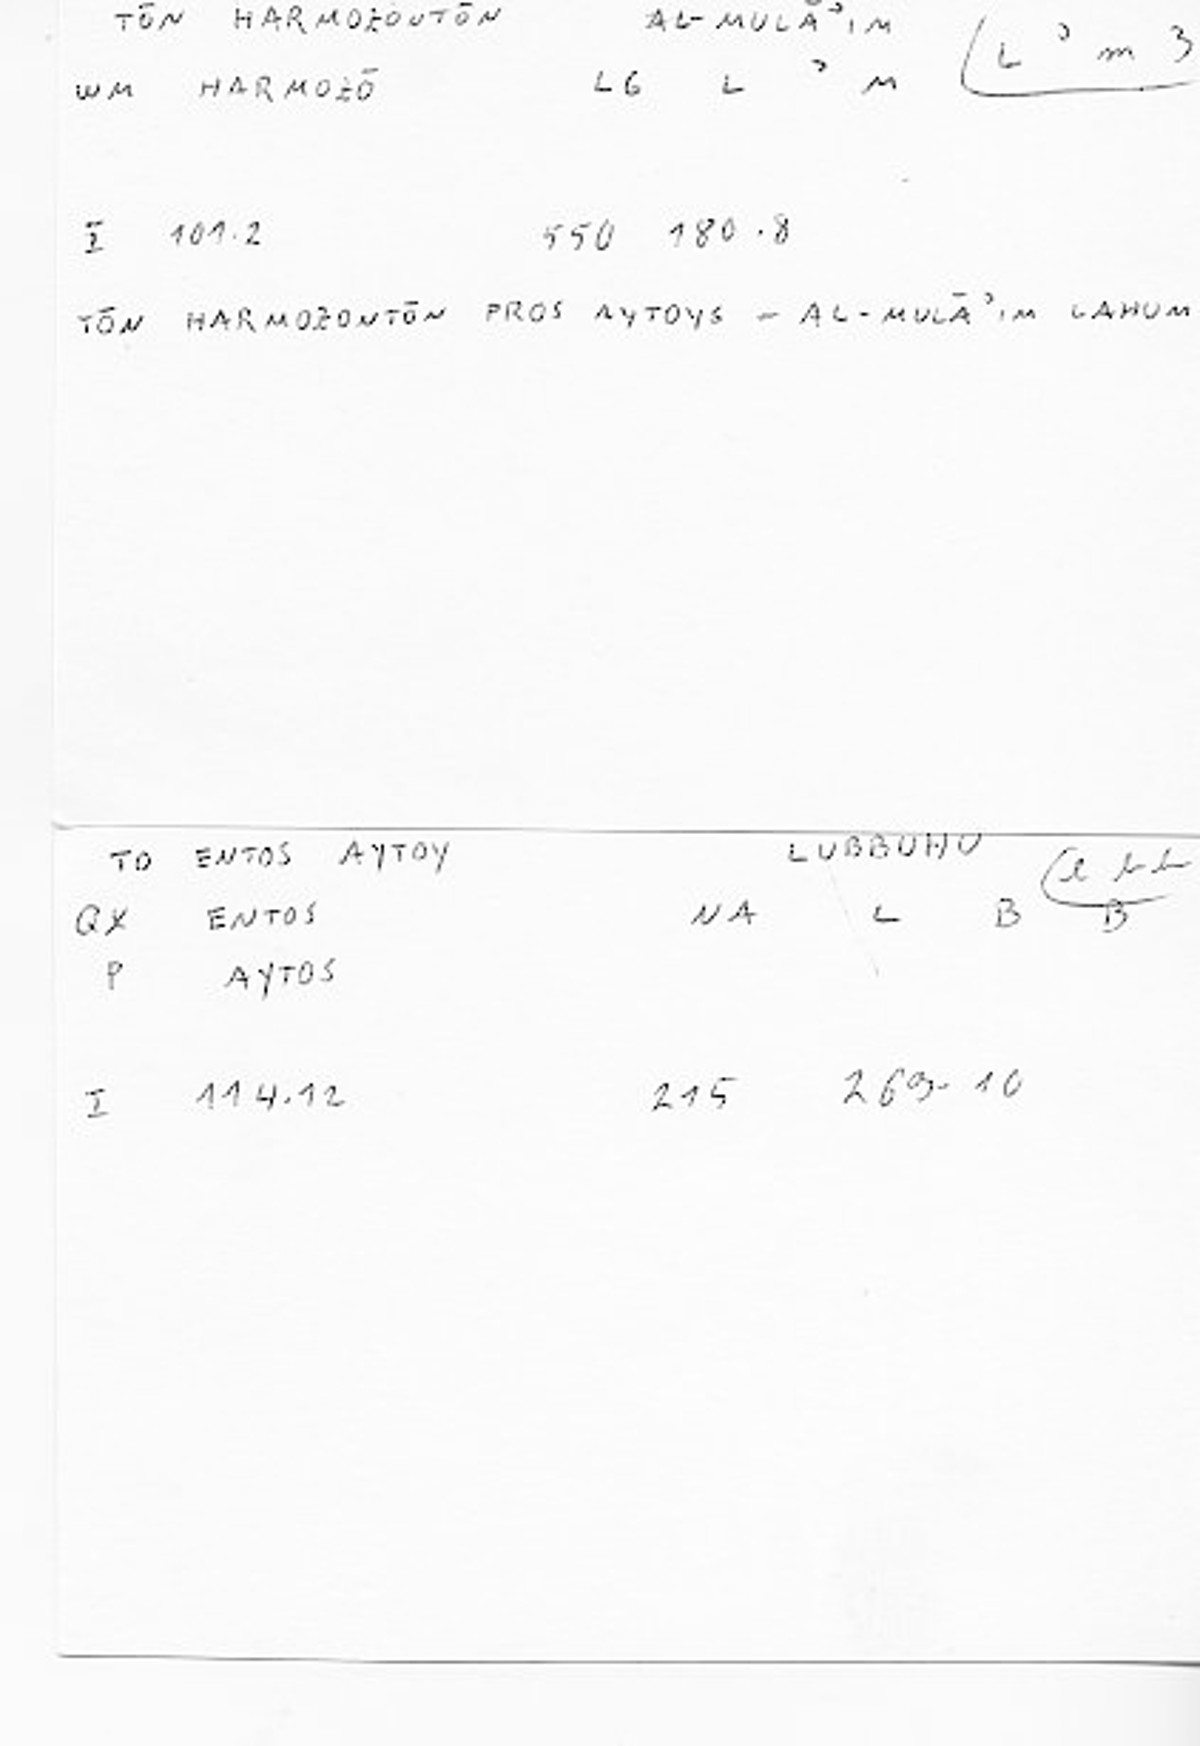 TŌN HARMOZONTŌN AL-MULĀʾIM
WM HARMOZŌ LG L ʾ M (L ʾ m 3
I 101.2 550 180.8
TŌN HARMOZONTŌN PROS AYTOYS – AL-MULĀʾIM LAHUM
TO ENTOS AYTOY LUBBUHU
QX ENTOS NA L B B (l b b
P AYTOS
I 114.12 215 269.10